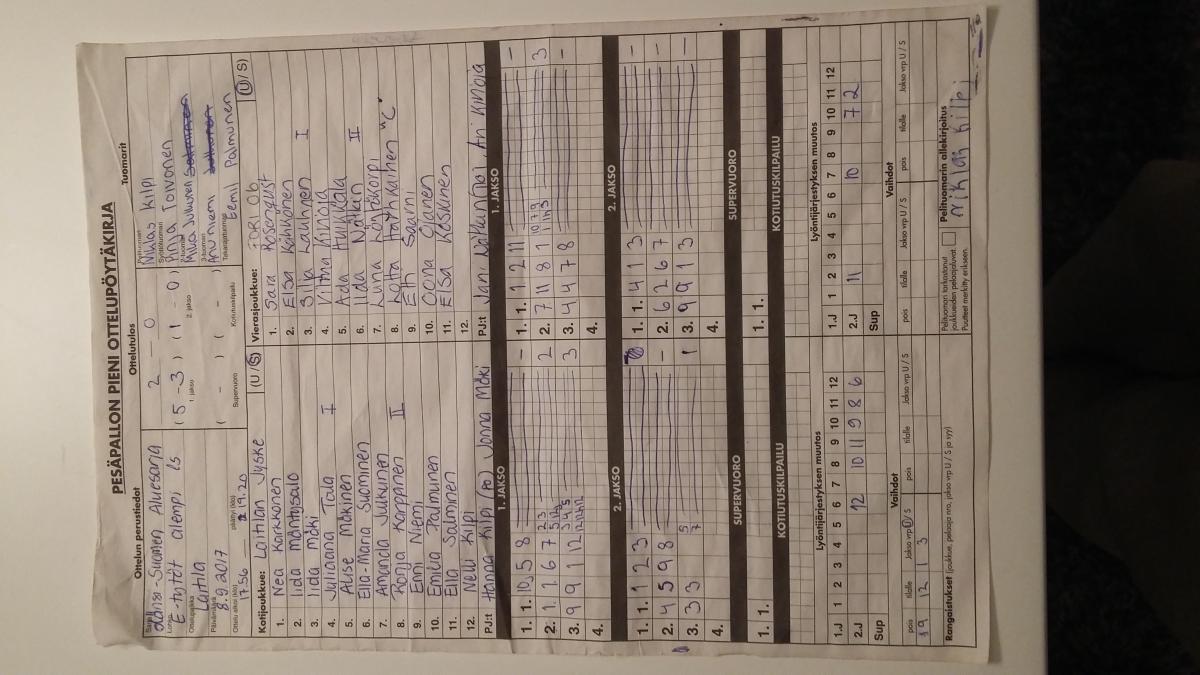 PESÄPALLON PIENI OTTELUPÖYTÄKIRJA
Ottelun perustiedot
Ottelutulos
Tuomarit
Sarja
Länsi-Suomen Aluesarja
Lohko
E-tytöt alempi ls
Ottelupaikka
Laitila
Päivämäärä
8.9.2017
Ottelu alkoi (klo) 17.56 päättyi (klo) 19.20
2 - 0
( 5 - 3 ) ( 1 - 0 )
1. jakso 2. jakso
( - ) ( - )
Supervuoro Kotiutuskilpailu
Pelituomari
Niklas Kilpi
Syöttötuomari
Anja Toivonen
2-tuomari
Miia Jukunen
3-tuomari
Anu Niemi
Takarajatuomari
Eemil Palmunen
Kotijoukkue: Laitilan Jyske (U / S)
1. Nea Karkkonen
2. Iida Mäntysalo
3. Iida Mäki
4. Juliana Tala I
5. Alise Mäkinen
6. Ella-Maria Suominen
7. Amanda Jukunen
8. Ronja Karppanen II
9. Enni Niemi
10. Emilia Palmunen
11. Ella Salminen
12. Nelli Kilpi
PJ:t Hanna Kilpi (PJ) Jonna Mäki
Vierasjoukkue: (U / S)
1. Sara Rosenqvist
2. Elsa Kähkönen
3. Silja Laihinen I
4. Vilma Kinola
5. Ada Huikkala
6. Iida Nätkin II
7. Luna Könnökorpi
8. Lotta Harhkainen "C"
9. Eti Saarni
10. Oona Ojanen
11. Elsa Koskinen
12.
PJ:t
1. JAKSO
1. JAKSO
1. 1. 10 5 8 -
2. 1 6 7 2
3. 9 9 1 12 3
4.
1. 1. 1 2 11 -
2. 7 11 8 1 3
3. 4 4 7 8 -
4.
2. JAKSO
2. JAKSO
1. 1. 1 2 3
2. 4 5 9 8 -
3. 3 3 5 7 1
4.
1. 1. 4 1 1 3 -
2. 6 2 6 7 -
3. 9 9 1 3 -
4.
SUPERVUORO
SUPERVUORO
1. 1.
1. 1.
KOTIUTUSKILPAILU
KOTIUTUSKILPAILU
Lyöntijärjestyksen muutos
Lyöntijärjestyksen muutos
1.J 1 2 3 4 5 6 7 8 9 10 11 12
2.J 12 10 11 9 8 6
Sup
1.J 1 2 3 4 5 6 7 8 9 10 11 12
2.J 11 10 7 2
Sup
Vaihdot
Vaihdot
pois tilalle Jakso vrp U / S pois tilalle Jakso vrp U / S
9 12 1 3
pois tilalle Jakso vrp U / S pois tilalle Jakso vrp U / S
Rangaistukset (joukkue, pelaaja nro, jakso vrp U / S ja syy)
Pelituomari tarkastanut
joukkueiden pelaajaluvat.
Puutteet merkitty erikseen.
Pelituomarin allekirjoitus
Niklas Kilpi